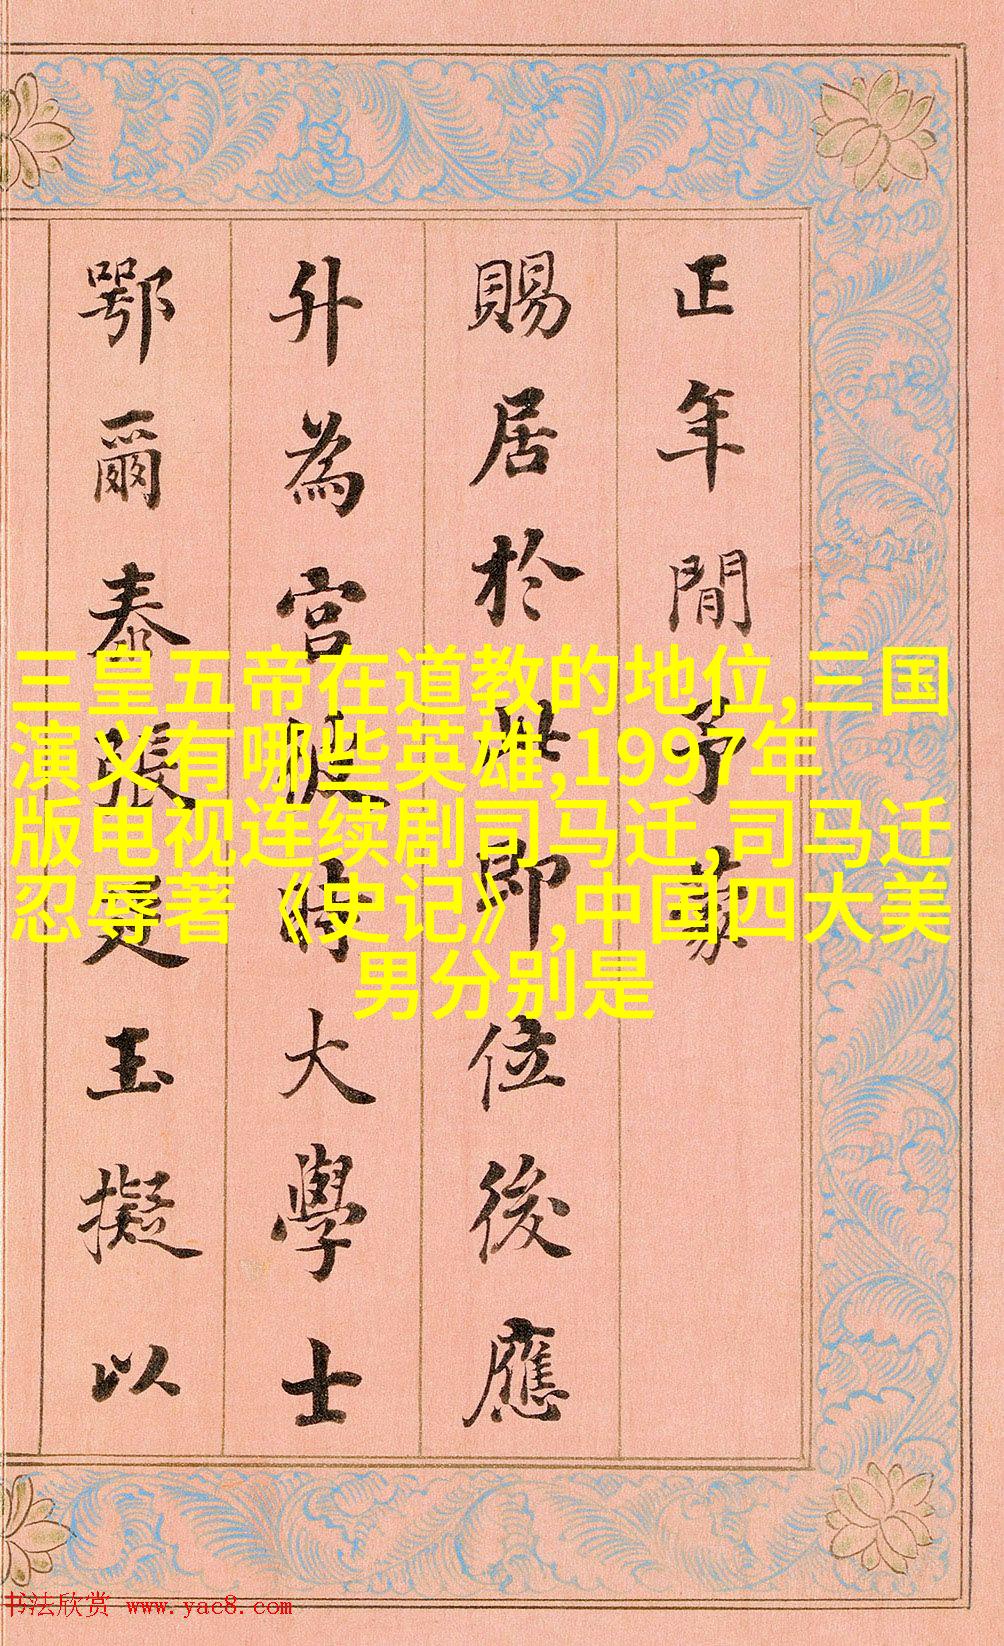 正年間予蒙
賜居於此即位後應
升為宮彼時大學士
鄂爾泰張廷玉擬以
三皇五帝在道教的地位,三国
演义有哪些英雄,1997年
版电视连续剧司马迁,司马迁
忍辱著《史记》,中国四大美
男分别是
书法欣赏 www.yac8.com